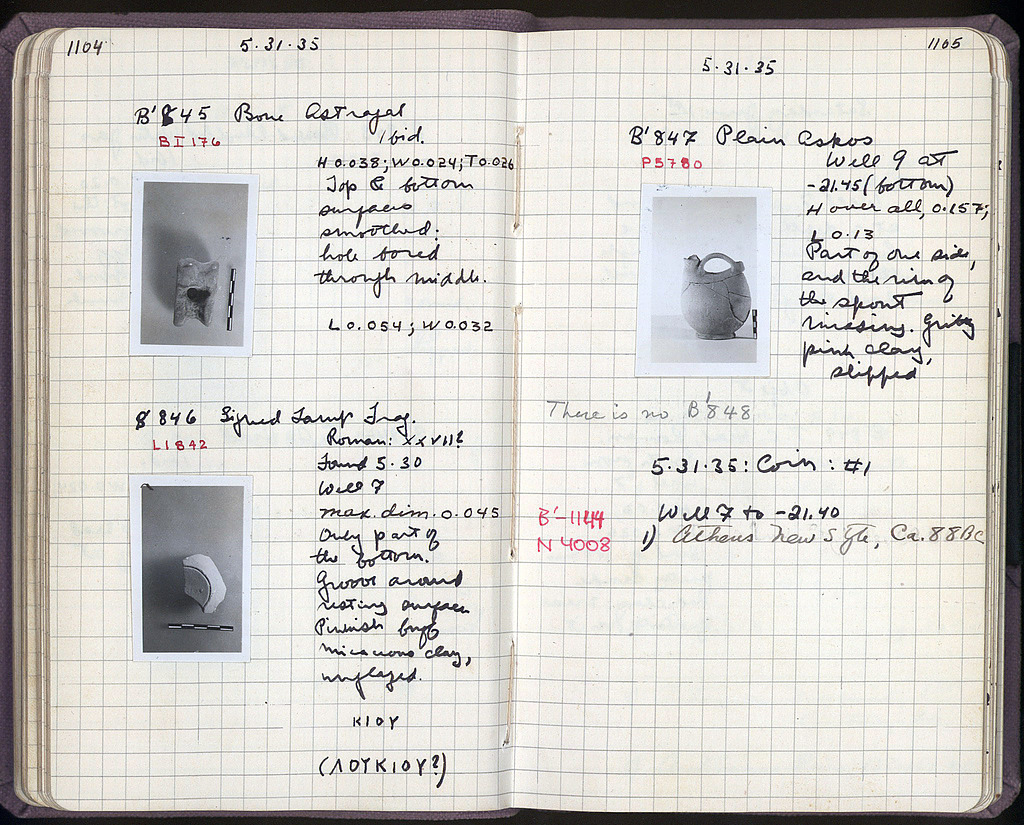 1104
5·31·35
B'845 Bone Astragal
BI 176
Ibid.
H 0.038; W 0.024; T 0.026
Top & bottom
surfaces
smoothed:
hole bored
through middle.
L 0.054; W 0.032
8 846 Signed Lamp Frag.
L1842
Roman: XXVII?
Found 5·30
Well 7
max. dim. 0.045
Only part of
the bottom.
Groove around
resting surface
Pinkish buff
micaceous clay,
unglazed.
ΚΙΟΥ
(ΛΟΥΚΙΟΥ?)
1105
5·31·35
B'847 Plain Askos
P5780
Well 9 at
-21.45 (bottom)
H over all, 0.157;
L 0.13
Part of one side,
and the rim of
the spout
missing. Gritty
pink clay,
slipped
There is no B'848
5·31·35: Coin: #1
B'-1144
N 4008
Well 7 to -21.40
1) Athens New Style, Ca. 88 BC